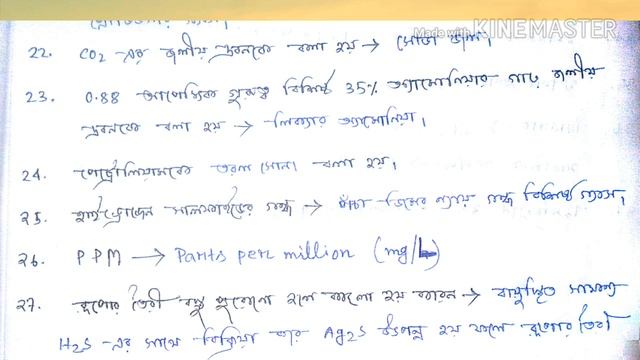 Made with KINEMASTER
22. CO2 -এর জলীয় দ্রবনকে বলা হয় → সোডা জল।
23. 0.88 আপেক্ষিক গুরুত্ব বিশিষ্ট 35% অ্যামোনিয়ার গাঢ় জলীয়
দ্রবনকে বলা হয় → লিকার অ্যামোনিয়া।
24. পেট্রোলিয়ামকে তরল সোনা বলা হয়।
25. হাইড্রোজেন সালফাইডের গন্ধ → পচা ডিমের ন্যায় গন্ধ বিশিষ্ট গ্যাস।
26. PPM → Parts per million (mg/L)
27. রূপোর তৈরী বস্তু পুরোনো হলে কালো হয় কারন → বায়ুস্থিত সামান্য
H2S -এর সাথে বিক্রিয়া করে Ag2S উৎপন্ন হয় ফলে রূপোর তৈরী